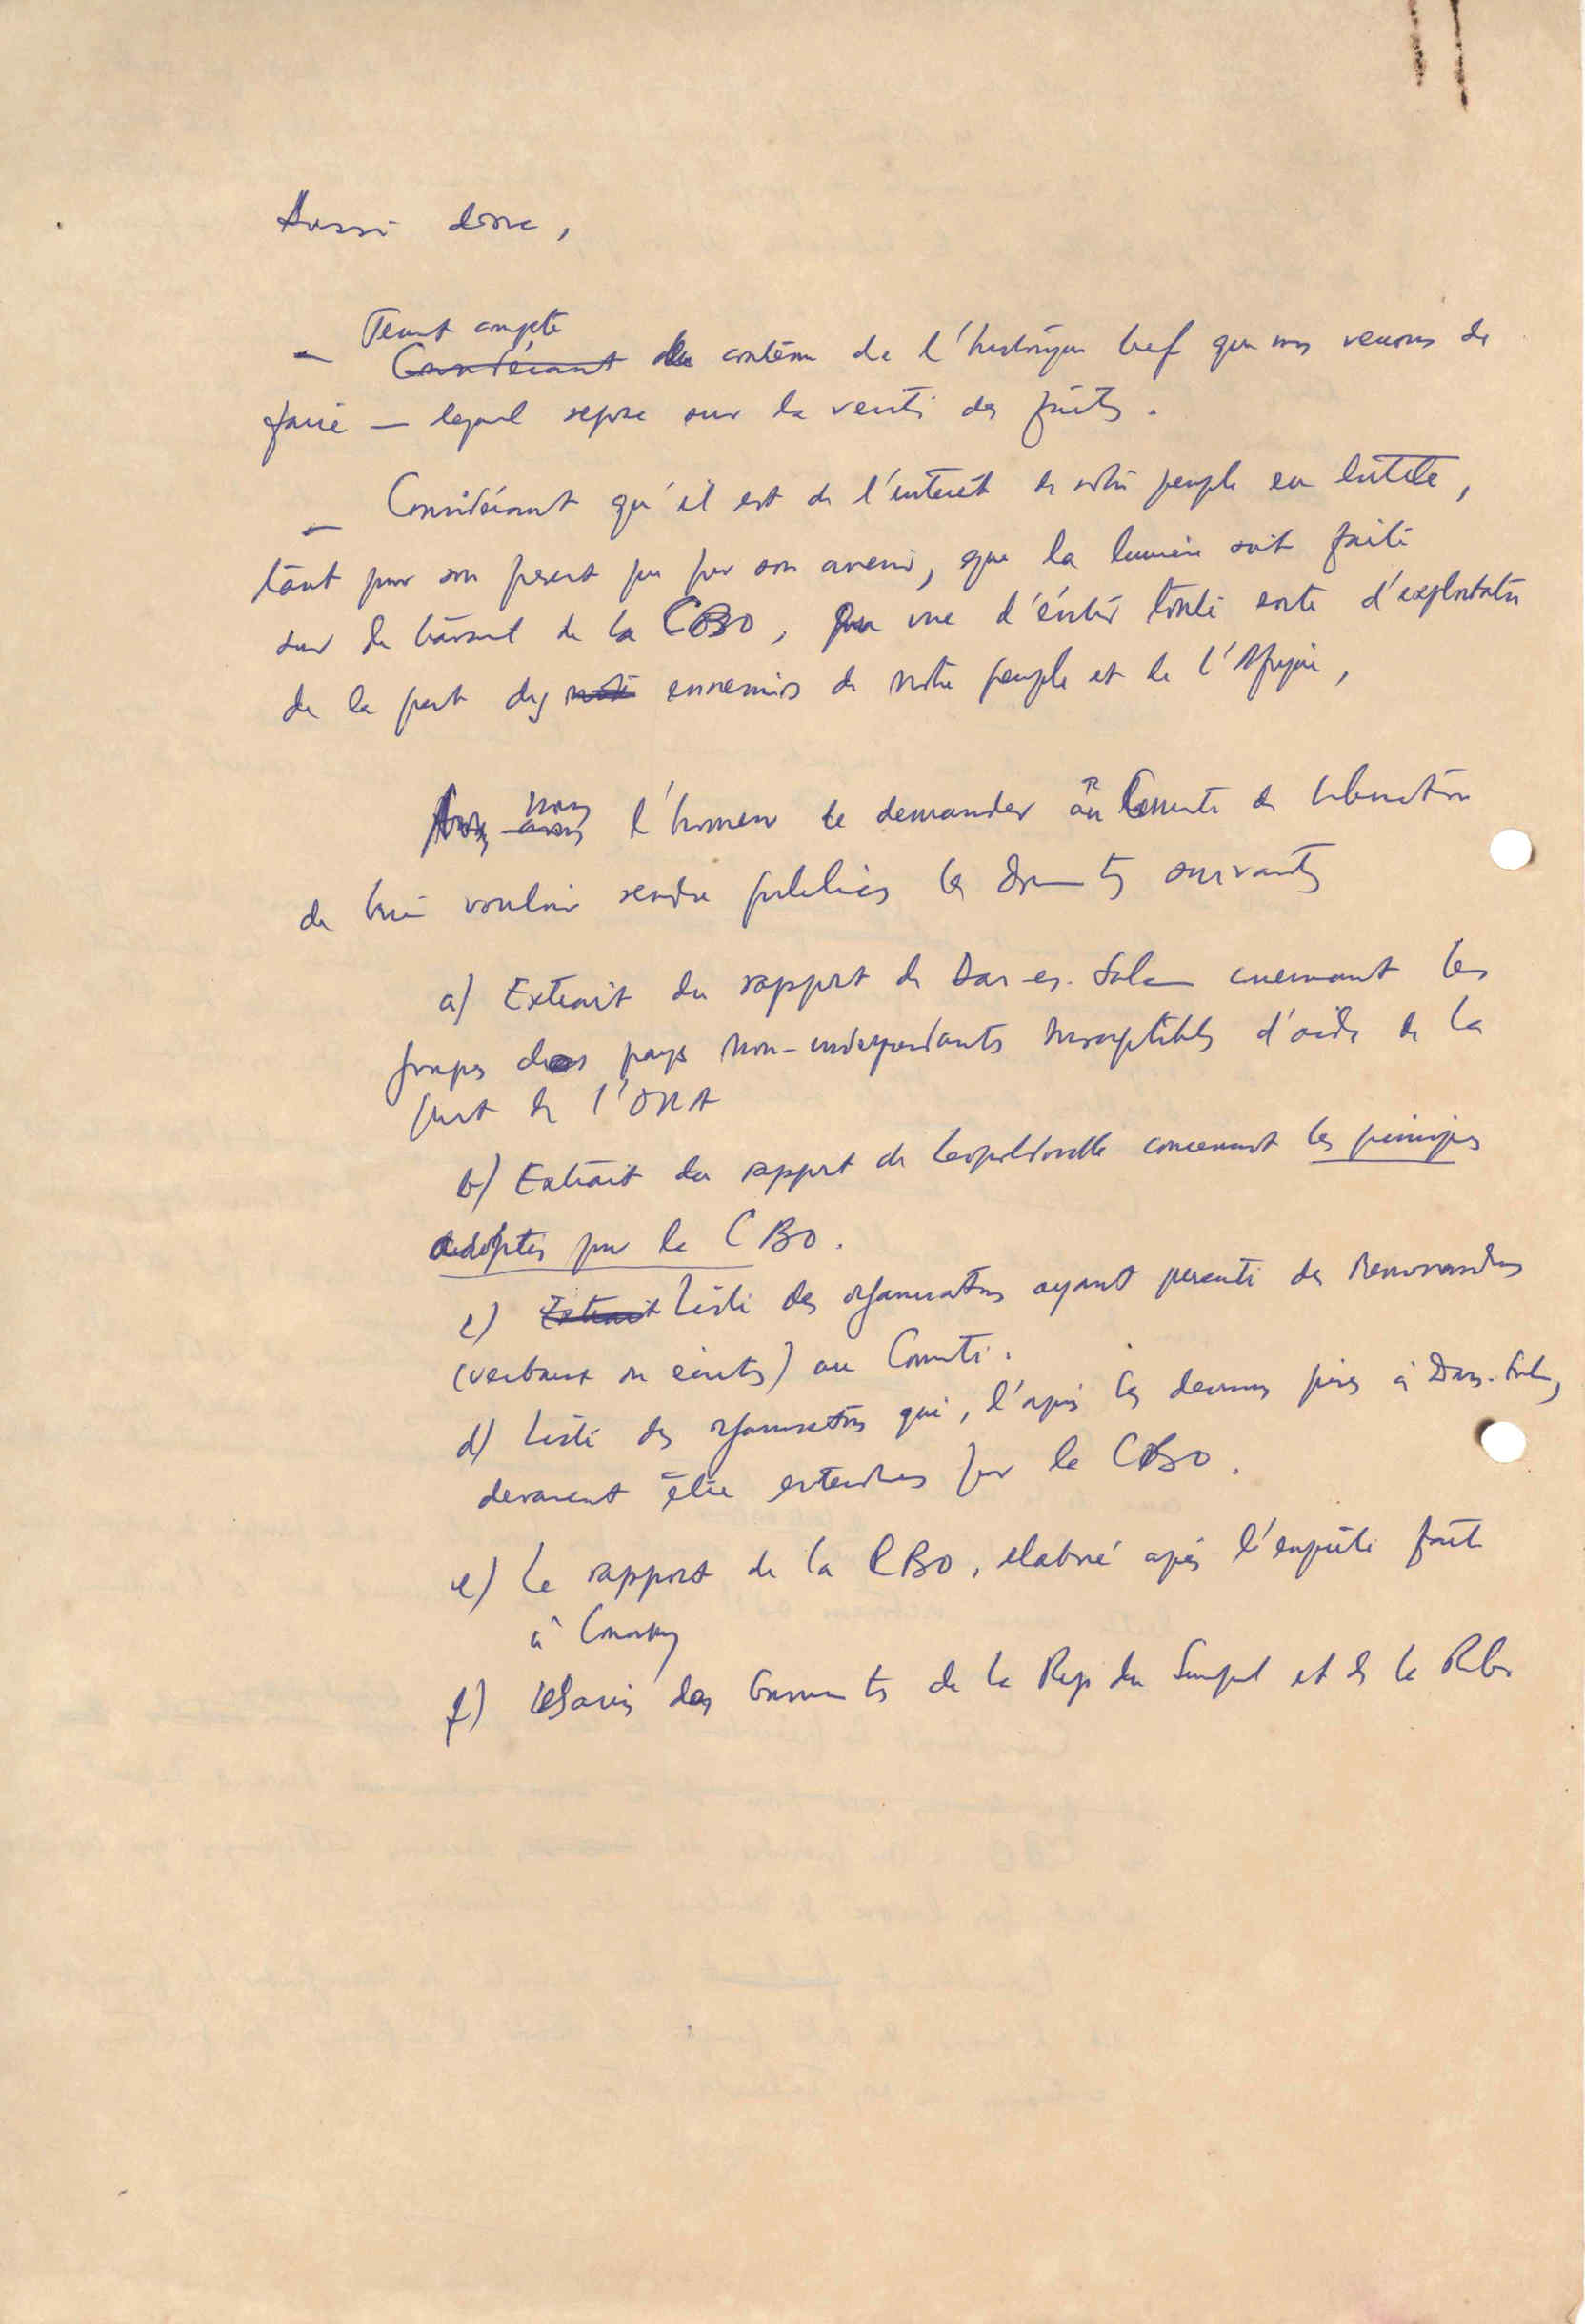 Aussi donc,
Tenant compte
— Considérant du contenu de l'historique bref que nous venons de
faire — lequel repose sur la verité des faits.
— Considérant qu'il est de l'interêt de notre peuple en lutte,
tant pour son present que pour son avenir, que la lumière soit faite
sur le travail de la CBO, en vue d'éviter toute sorte d'exploitation
de la part des notre ennemis de notre peuple et de l'Afrique,
nous
avons l'honneur de demander au Comité de Liberation
de bien vouloir rendre publics les documents suivants
a) Extrait du rapport de Dar-es-Salam concernant les
groupes des pays non-independants susceptibles d'aide de la
part de l'OUA
b) Extrait du rapport de Leopoldville concernant les principes
adoptés par la CBO.
c) Extrait Liste des organisations ayant presenté des memorandums
(verbaux ou écrits) au Comité.
d) Liste des organisations qui, d'après les decisions prises à Dar-Salam,
devraient être entendues par la CBO.
e) Le rapport de la CBO, elaboré après l'enquête faite
à Conakry
f) des Gouvernements de la Rep du Senegal et de la Rep